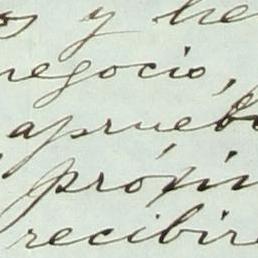 s y he
negocio,
aprueb
próxi
recibir